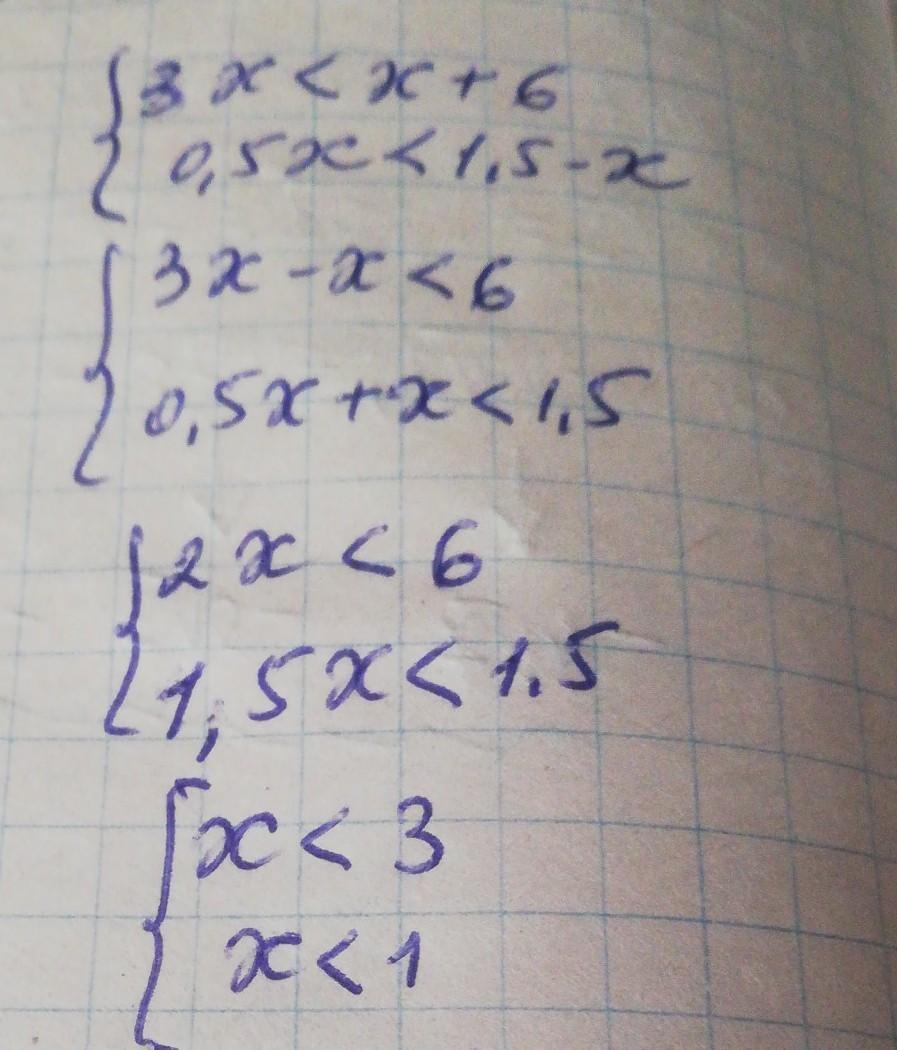 3x < x + 6
0,5x < 1,5 - x
3x - x < 6
0,5x + x < 1,5
2x < 6
1,5x < 1.5
x < 3
x < 1